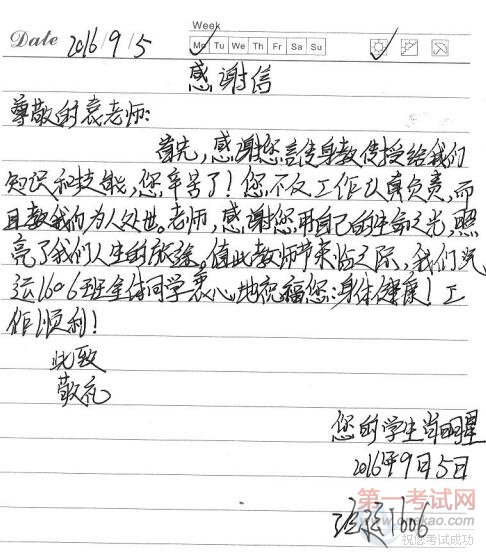 Week
Date 2016/9/5 Mo Tu We Th Fr Sa Su
感谢信
尊敬的袁老师:
首先,感谢您言传身教传授给我们
知识和技能,您辛苦了!您不仅工作认真负责,而
且教我们为人处世。老师,感谢您用自己的生命之光,照
亮了我们人生的旅途。值此教师节来临之际,我们汽
运1606班全体同学衷心地祝福您:身体健康!工
作顺利!
此致
敬礼
您的学生肖明星
2016年9月5日
1606
第一考试网
祝您考试成功